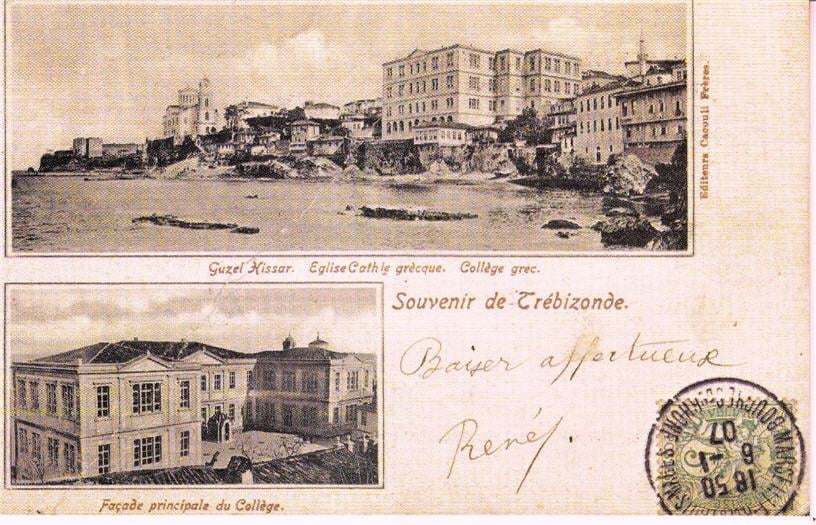 Guzel Hissar. Eglise Cathle grècque. Collège grec.
Editeurs Cacouli Frères.
Souvenir de Trébizonde.
Baiser affectueux
René.
Façade principale du Collège.
18 50
6 -1
07